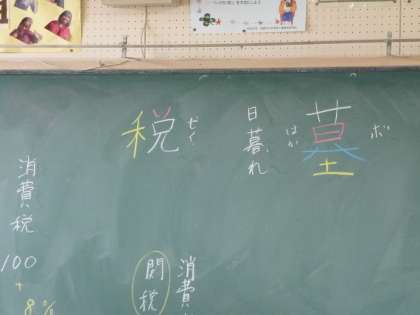 墓
ボ
はか
日暮れ
税
ぜい
消費
関税
消費税
100
+
8%